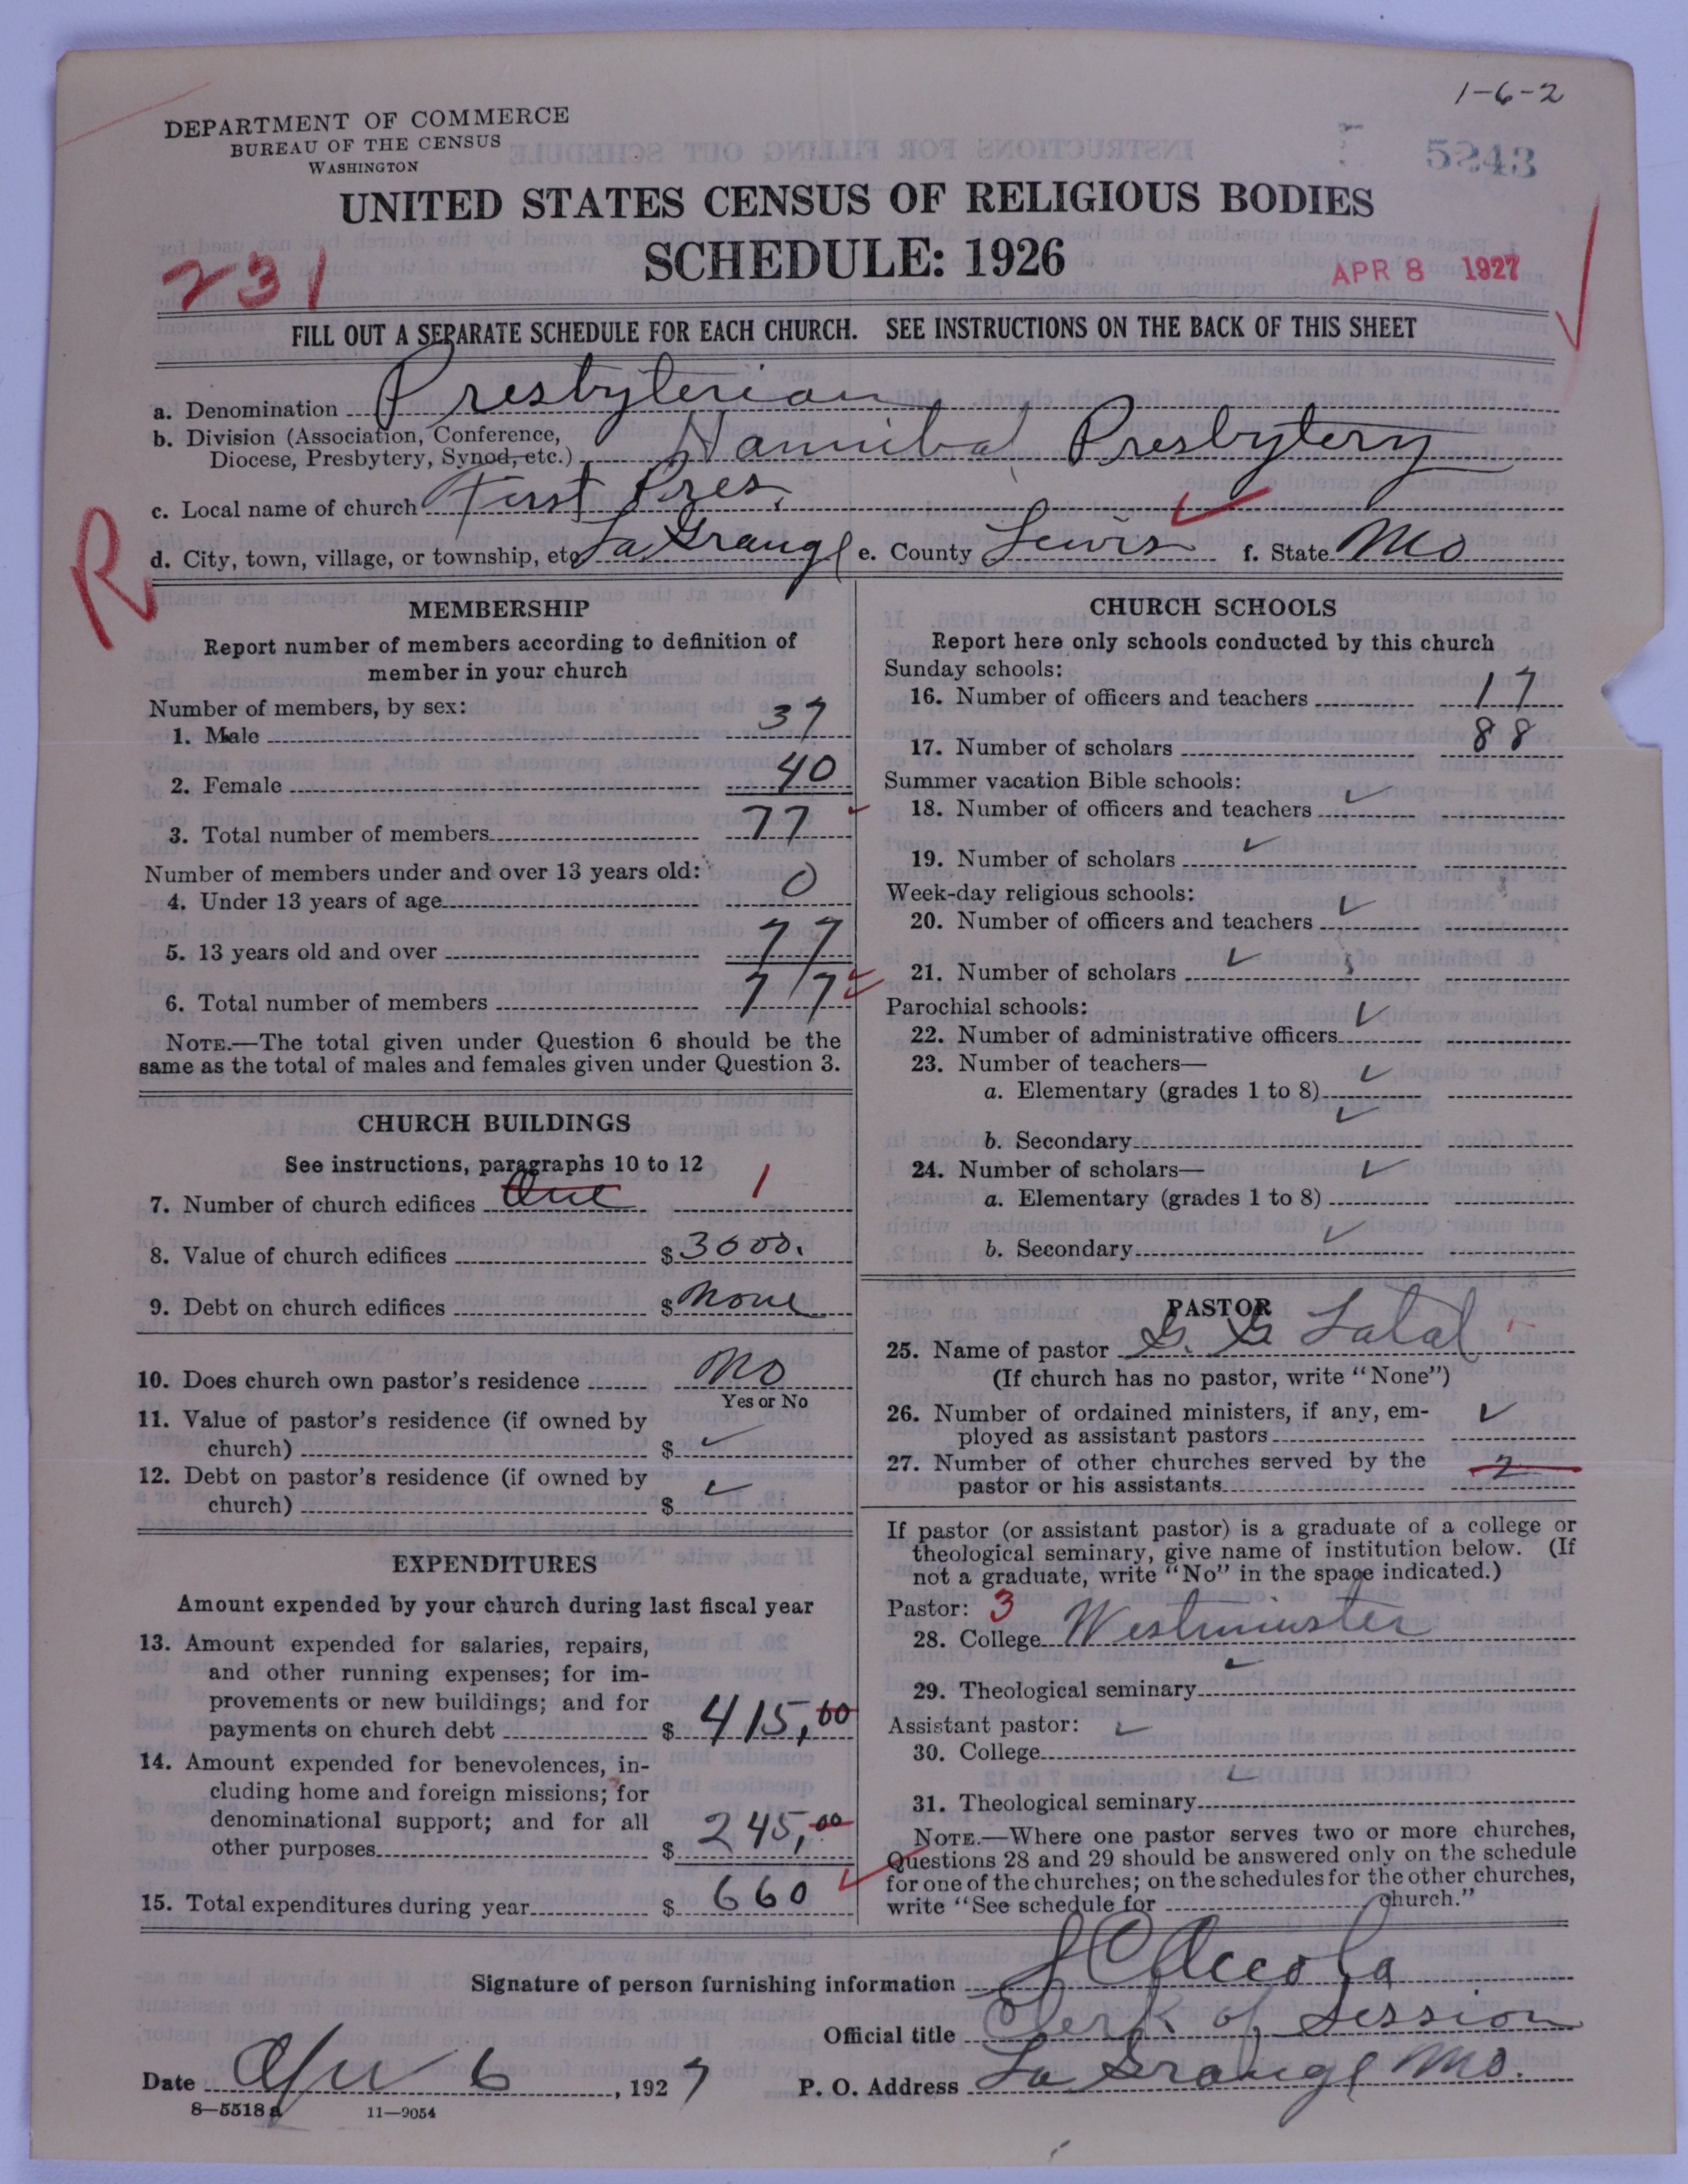 1-6-2
DEPARTMENT OF COMMERCE
BUREAU OF THE CENSUS
WASHINGTON
5243
UNITED STATES CENSUS OF RELIGIOUS BODIES
SCHEDULE: 1926
231
APR 8 1927
FILL OUT A SEPARATE SCHEDULE FOR EACH CHURCH. SEE INSTRUCTIONS ON THE BACK OF THIS SHEET
a. Denomination Presbyterian
b. Division (Association, Conference,
Diocese, Presbytery, Synod, etc.) Hannibal Presbytery
c. Local name of church First Pres.
d. City, town, village, or township, etc La Grange e. County Lewis f. State Mo
R
MEMBERSHIP
Report number of members according to definition of
member in your church
Number of members, by sex:
1. Male 37
2. Female 40
3. Total number of members 77
Number of members under and over 13 years old:
4. Under 13 years of age 0
5. 13 years old and over 77
6. Total number of members 77
NOTE.—The total given under Question 6 should be the
same as the total of males and females given under Question 3.
CHURCH BUILDINGS
See instructions, paragraphs 10 to 12
7. Number of church edifices One 1
8. Value of church edifices $3000.
9. Debt on church edifices $ None
10. Does church own pastor's residence No
Yes or No
11. Value of pastor's residence (if owned by
church) $ ✓
12. Debt on pastor's residence (if owned by
church) $ ✓
EXPENDITURES
Amount expended by your church during last fiscal year
13. Amount expended for salaries, repairs,
and other running expenses; for im-
provements or new buildings; and for
payments on church debt $ 415,00
14. Amount expended for benevolences, in-
cluding home and foreign missions; for
denominational support; and for all
other purposes $ 245,00
15. Total expenditures during year $ 660
CHURCH SCHOOLS
Report here only schools conducted by this church
Sunday schools:
16. Number of officers and teachers 17
17. Number of scholars 88
Summer vacation Bible schools:
18. Number of officers and teachers ✓
19. Number of scholars ✓
Week-day religious schools:
20. Number of officers and teachers ✓
21. Number of scholars ✓
Parochial schools:
22. Number of administrative officers ✓
23. Number of teachers—
a. Elementary (grades 1 to 8) ✓
b. Secondary ✓
24. Number of scholars—
a. Elementary (grades 1 to 8) ✓
b. Secondary ✓
PASTOR
25. Name of pastor G. G.
(If church has no pastor, write "None")
26. Number of ordained ministers, if any, em-
ployed as assistant pastors ✓
27. Number of other churches served by the
pastor or his assistants 2
If pastor (or assistant pastor) is a graduate of a college or
theological seminary, give name of institution below. (If
not a graduate, write "No" in the space indicated.)
Pastor: 3
28. College Westminster
29. Theological seminary ✓
Assistant pastor:
30. College ✓
31. Theological seminary ✓
NOTE.—Where one pastor serves two or more churches,
Questions 28 and 29 should be answered only on the schedule
for one of the churches; on the schedules for the other churches,
write "See schedule for church."
Signature of person furnishing information
Official title Clerk of Session
Date Apr 6, 1927 P. O. Address La Grange Mo.
8—5518a 11—9054